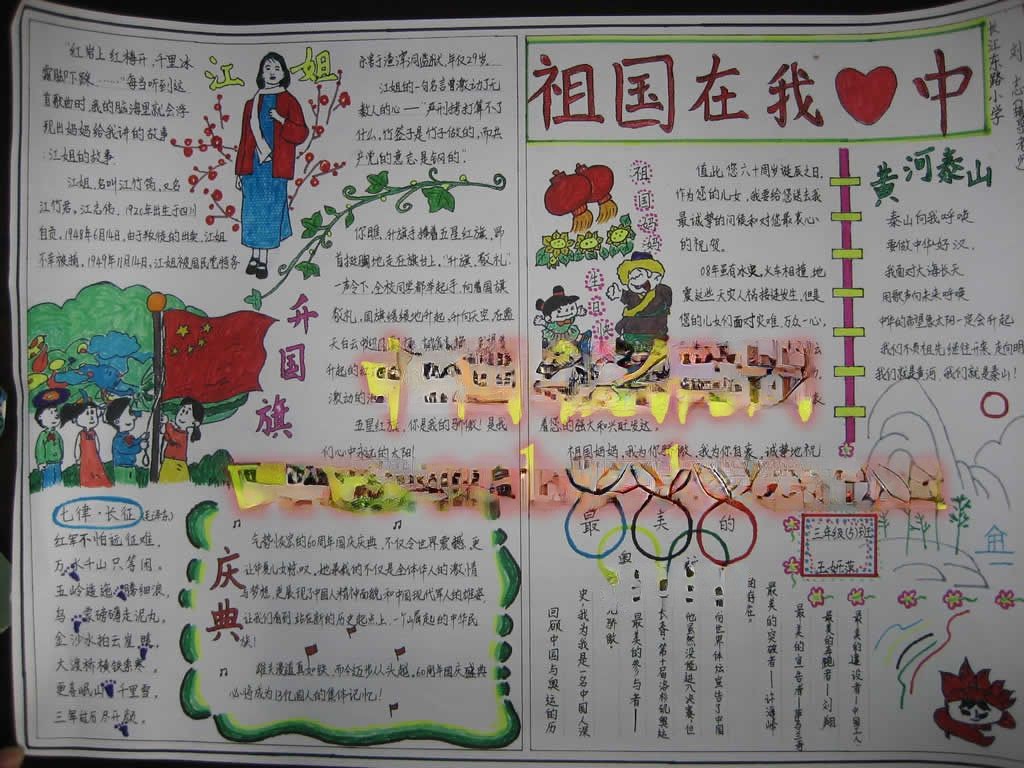 祖国在我中
长江东路小学
江姐
"红岩上红梅开,千里冰
霜脚下踩……"每当听到这
首歌曲时,我的脑海里就会浮
现出妈妈给我讲的故事
:江姐的故事.
江姐,名叫江竹筠,又名
江竹君,江志伟,1920年出生于四川
自贡,1948年6月14日,由于叛徒的出卖,江姐
不幸被捕,1949年11月14日,江姐被国民党特务
杀害于渣滓洞监狱,年仅29岁.
江姐的一句名言曾激动了无
数人的心——"严刑拷打算不了
什么,竹签子是竹子做的,而共
产党的意志是钢的".
升国旗
你瞧,升旗手捧着五星红旗,昂
首挺胸地走在旗台上,"升旗、敬礼"
一声令下,全校同学都举起手,向着国旗
敬礼,国旗缓缓地升起,升向天空,在蓝
天白云
升起的
五星红旗,你是我的骄傲!是我
们心中永远的太阳!
七律·长征(毛泽东)
红军不怕远征难,
万水千山只等闲.
五岭逶迤腾细浪,
乌蒙磅礴走泥丸.
金沙水拍云崖暖,
大渡桥横铁索寒.
更喜岷山千里雪,
三军过后尽开颜.
庆典
气势恢宏的60周年国庆庆典,不仅令世界震撼,更
让华夏儿女惊叹,她承载的不仅是全体华人的激情
与梦想,更展现了中国人精神面貌和中国现代军人的雄姿,
让我们看到站在新的历史起点上,一个屹立的中华民
族!
雄关漫道真如铁,而今迈步从头越,60周年国庆盛典
必将成为13亿国人的集体记忆!
祖国妈妈
生日快乐
值此您六十周岁诞辰之日,
作为您的儿女,我要给您送去我
最诚挚的问候和对您最衷心
的祝贺.
08年虽有冰灾,火车相撞,地
震这些天灾人祸接连发生,但是
您的儿女们面对灾难,万众一心,
着您的强大和兴旺发达.
祖国妈妈,我为你骄傲,我为你自豪,诚挚地祝
黄河泰山
泰山向我呼唤
要做中华好汉.
我面对大海长天
用歌声向未来呼唤
中华的希望象太阳一定会升起!
我们不负祖先继往开来,走向明
我们就是黄河,我们就是泰山!
最美的
三年级(3)班
最美的建设者——中国工人
最美的奔跑者——刘翔
最美的宣告者——萨马兰奇
最美的突破者——许海峰
的存在.
向世界体坛宣告了中国
他虽然没能进入决赛,但
长春,第十届洛杉矶奥运
最美的参与者——
史,我为我是一名中国人深
回顾中国与奥运的历